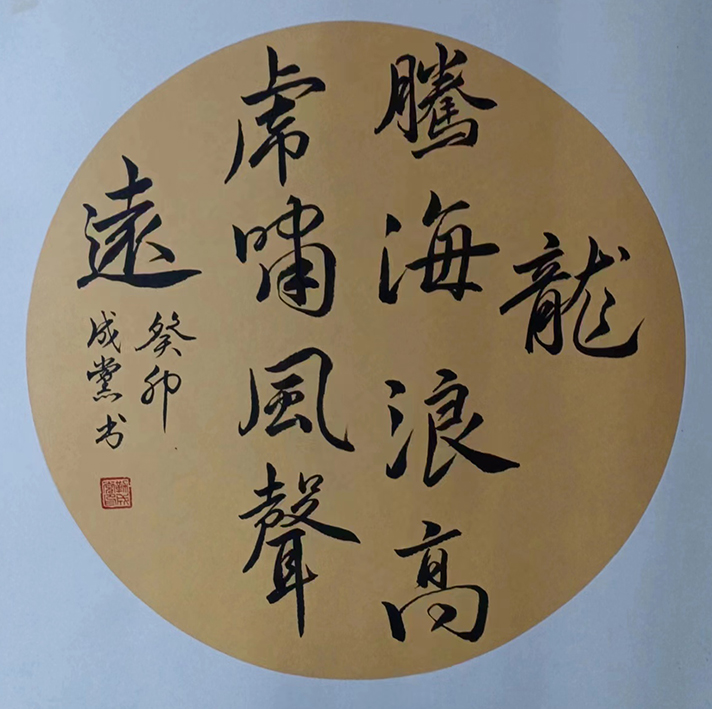 龍
騰海浪高
虎嘯風聲
遠
癸卯
成黨书